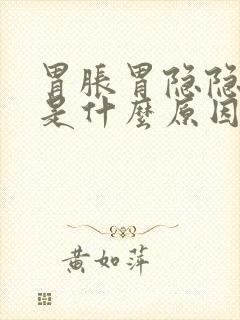 胃胀胃隐隐
是什麼原因
黄如萍